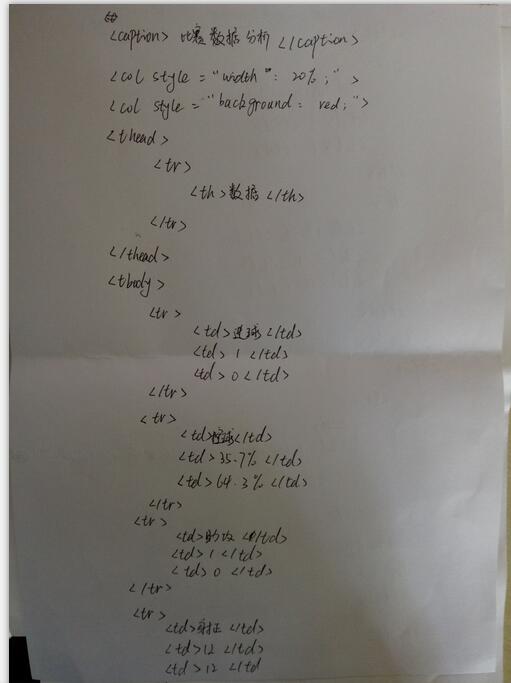 <caption> 比赛数据分析 </caption>
<col style = "width": 20%;" >
<col style = "background: red;">
<thead>
<tr>
<th>数据</th>
</tr>
</thead>
<tbody>
<tr>
<td>进球</td>
<td> 1 </td>
<td> 0 </td>
</tr>
<tr>
<td>控球</td>
<td>35.7% </td>
<td>64.3% </td>
</tr>
<tr>
<td>助攻 </td>
<td> 1 </td>
<td> 0 </td>
</tr>
<tr>
<td>射正 </td>
<td>12 </td>
<td>12 </td